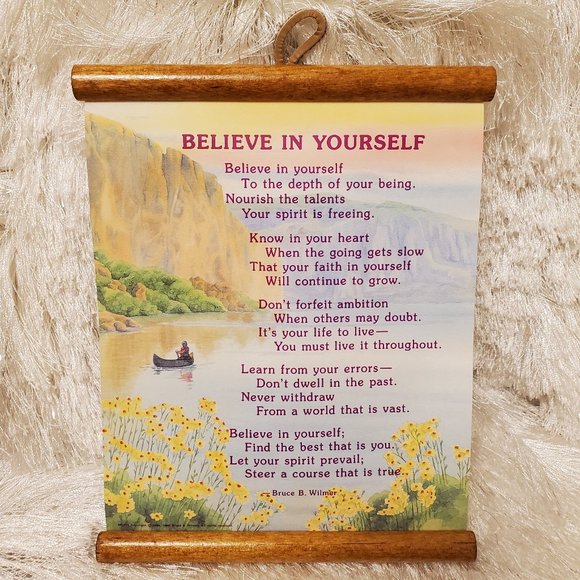 BELIEVE IN YOURSELF
Believe in yourself
To the depth of your being.
Nourish the talents
Your spirit is freeing.
Know in your heart
When the going gets slow
That your faith in yourself
Will continue to grow.
Don't forfeit ambition
When others may doubt.
It's your life to live—
You must live it throughout.
Learn from your errors—
Don't dwell in the past.
Never withdraw
From a world that is vast.
Believe in yourself;
Find the best that is you.
Let your spirit prevail;
Steer a course that is true.
—Bruce B. Wilmer